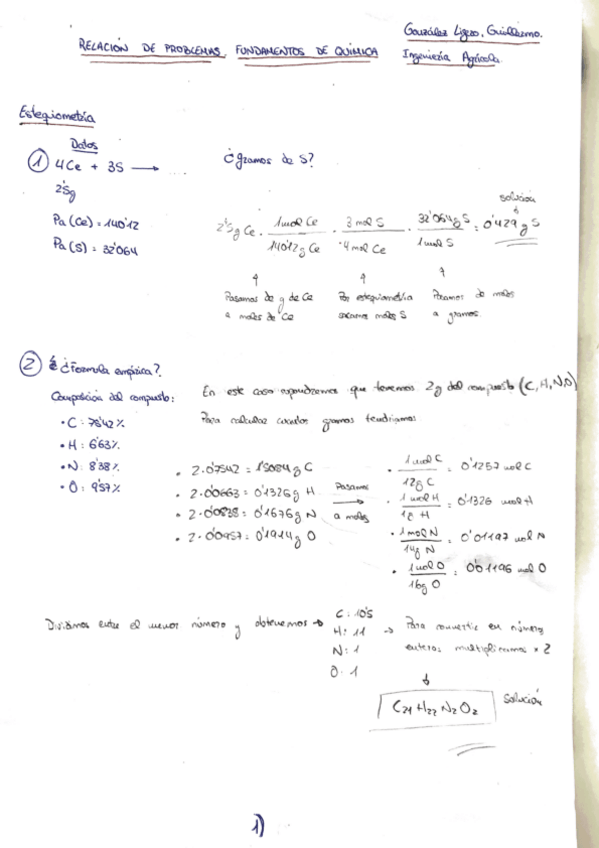 González Ligero, Guillermo.
RELACIÓN DE PROBLEMAS FUNDAMENTOS DE QUÍMICA
Ingeniería Agrícola
Estequiometría
Datos
1 4Ce + 3S → ¿gramos de S?
2'5g
Pa (Ce) = 140'12
Pa (S) = 32'064
2'5g Ce · 1 mol Ce / 140'12 g Ce · 3 mol S / 4 mol Ce · 32'064 g S / 1 mol S = 0'429 g S
solución
Pasamos de g de Ce a moles de Ce
Por estequiometría sacamos moles S
Pasamos de moles a gramos.
2 ¿Formula empírica?
Composición del compuesto:
• C: 75'42%
• H: 6'63%
• N: 8'38%
• O: 9'57%
En este caso supondremos que tenemos 2g del compuesto (C, H, N, O)
Para calcular cuantos gramos tendríamos
• 2·0'7542 = 1'5084 g C
• 2·0'0663 = 0'1326 g H
• 2·0'0838 = 0'1676 g N
• 2·0'0957 = 0'1914 g O
Pasamos → a moles
• 1 mol C / 12g C = 0'1257 mol C
• 1 mol H / 1g H = 0'1326 mol H
• 1 mol N / 14g N = 0'01197 mol N
• 1 mol O / 16g O = 0'01196 mol O
Dividimos entre el menor número y obtenemos →
C: 10'5
H: 11
N: 1
O: 1
→ Para convertir en números enteros multiplicamos × 2
C21 H22 N2 O2 Solución
1)